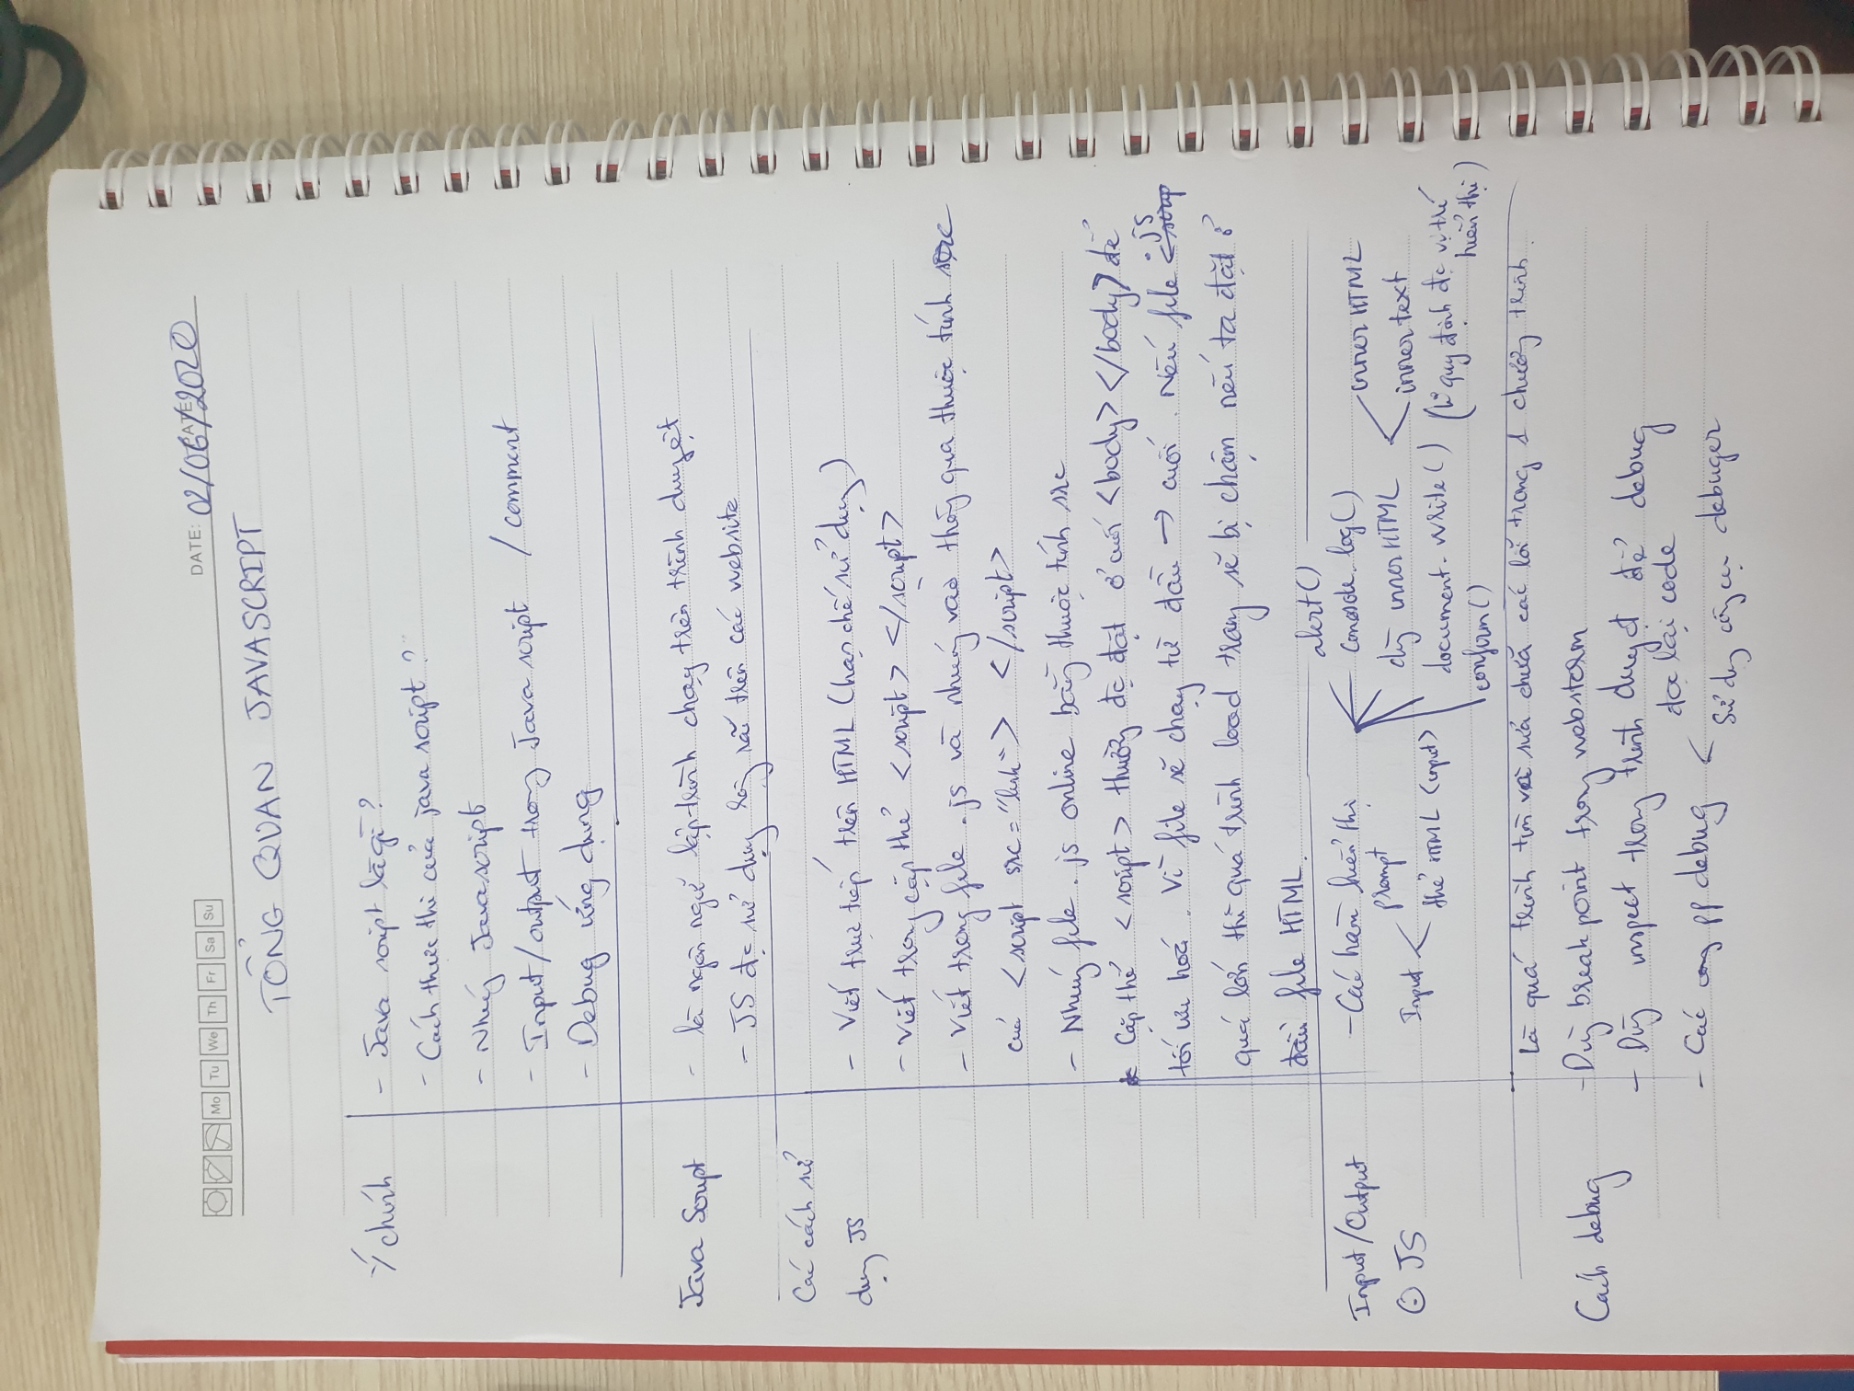 Mo Tu We Th Fr Sa Su
DATE: 02/06/2020
TỔNG QUAN JAVASCRIPT
Ý chính
- Java script là gì?
- Cách thực thi của java script?
- Nhúng Javascript
- Input/output trong Java script / comment
- Debug ứng dụng
Java Script
- là ngôn ngữ lập trình chạy trên trình duyệt
- JS đc sử dụng rộng rãi trên các website
Các cách sử
dụng JS
- Viết trực tiếp trên HTML (hạn chế sử dụng)
- Viết trong cặp thẻ <script> </script>
- Viết trong file .js và nhúng vào thông qua thuộc tính src
của <script src="link"> </script>
- Nhúng file .js online bằng thuộc tính src
* Cặp thẻ <script> thường đc đặt ở cuối <body></body> để
tối ưu hoá. Vì file sẽ chạy từ đầu → cuối. Nếu file .js
quá lớn thì quá trình load trang sẽ bị chậm nếu ta đặt ở
đầu file HTML.
Input/Output
JS
- Các hàm hiển thị
alert()
console.log()
dùng innerHTML
innerHTML
innertext
document.write() (k quy định đc vị trí
hiển thị)
confirm()
Input
prompt
thẻ HTML <input>
Là quá trình tìm và sửa chữa các lỗi trong 1 chương trình.
Cách debug
- Dùng break point trong webstorm
- Dùng inspect trong trình duyệt để debug
- Các pp debug
đọc lại code
Sử dụng công cụ debuger